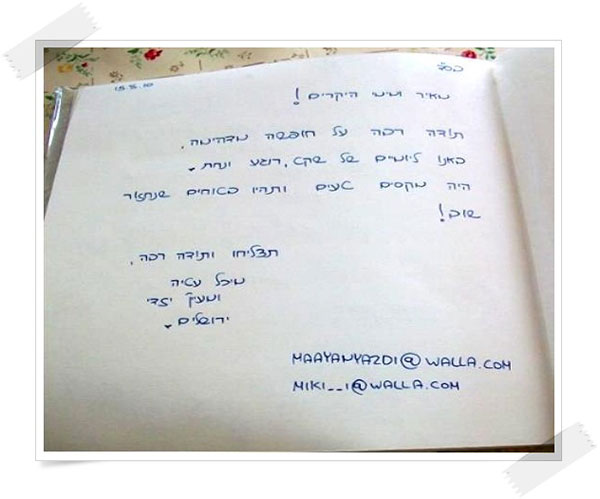 בס"ד
13.5.10
מאיר ומימי היקרים!
תודה רבה על חופשה מדהימה.
באנו ליומיים של שקט, רוגע ונחת.
היה מקסים ונעים ותהיו בטוחים שנחזור
שוב!
תצליחו ותודה רבה.
מיכל עטיה
ומעין יזדי
ירושלים.
MAAYANYAZDI@WALLA.COM
MIKI__I@WALLA.COM